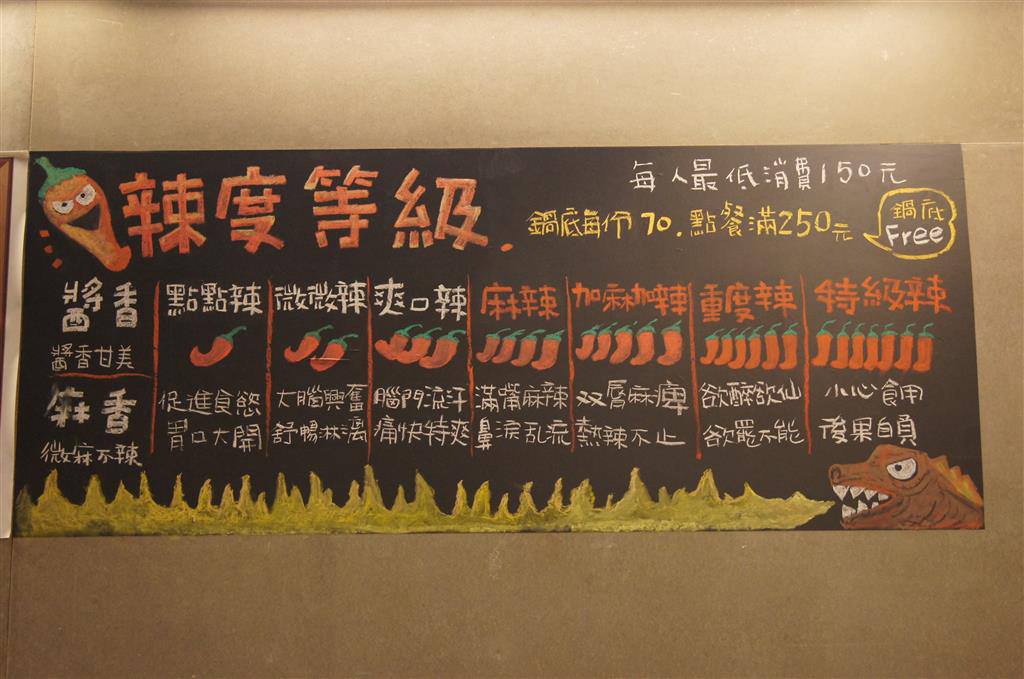 辣度等級.
每人最低消費150元
鍋底每份70.點餐滿250元
鍋底
Free
醬香
醬香甘美
麻香
微麻不辣
點點辣
促進食慾
胃口大開
微微辣
大腦興奮
舒暢淋漓
爽口辣
腦門流汗
痛快特爽
麻辣
滿嘴麻辣
鼻淚乱流
加麻加辣
双唇麻痺
熱辣不止
重度辣
欲醉欲仙
欲罷不能
特級辣
小心食用
後果自負